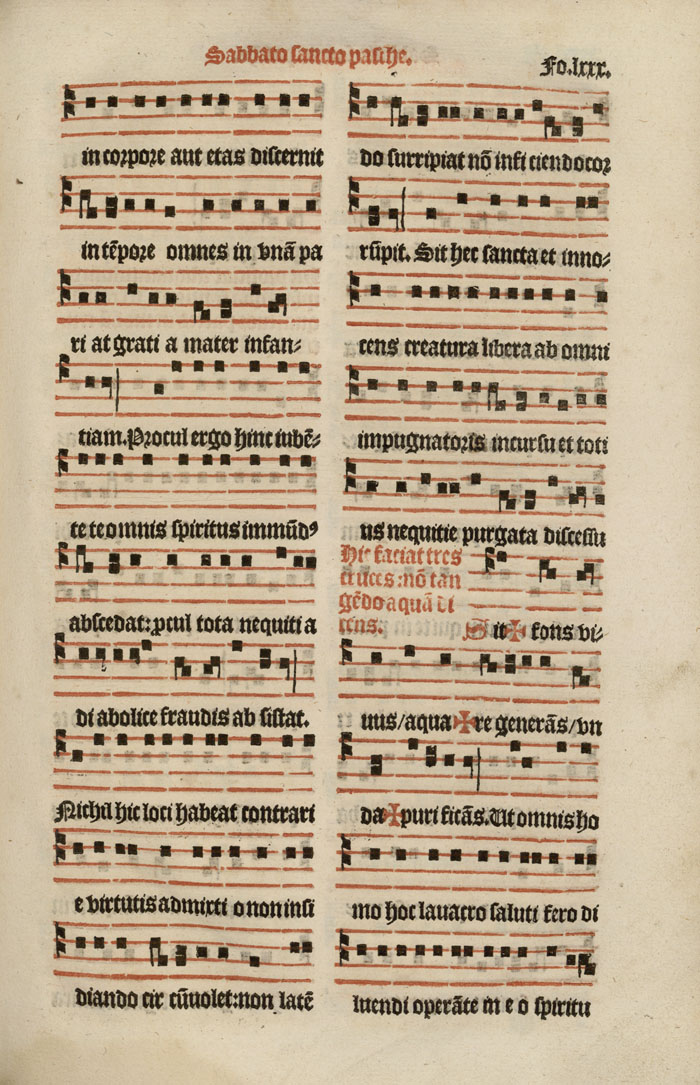 Sabbato sancto pasche.
Fo.lxxx.
in corpore aut etas discernit
in tēpore omnes in vnā pa
ri at grati a mater infan-
tiam. Procul ergo hinc iubē-
te te omnis spiritus immūdꝰ
abscedat: ꝓcul tota nequiti a
di abolice fraudis ab sistat.
Nichil hic loci habeat contrari
e virtutis admixti o non insi
diando cir cūuolet: non latē
do surripiat nō infi ciendo cor
rūpit. Sit hec sancta et inno-
cens creatura libera ab omni
impugnatoris incursu et toti
us nequitie purgata discessu
Hic faciat tres
cruces: nō tan
gēdo aquā di
cens.
Sit ✠ fons vi-
uus/aqua ✠ re generās/vn
da ✠ puri ficās. Ut omnis ho
mo hoc lauacro saluti fero di
luendi operāte in e o spiritu